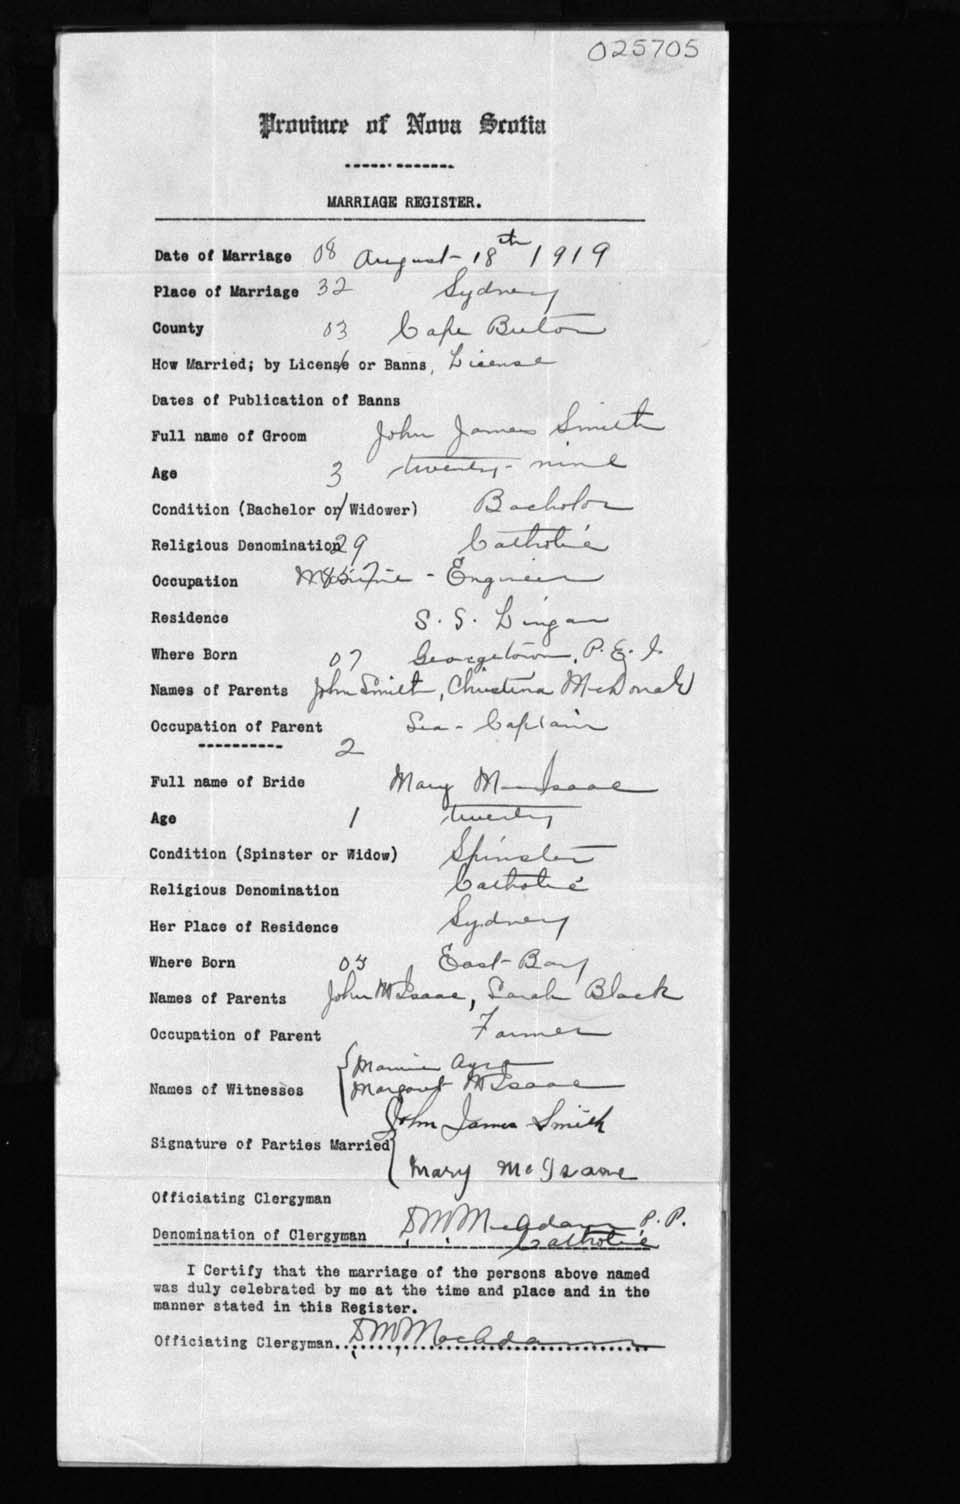 025705
Province of Nova Scotia
MARRIAGE REGISTER.
Date of Marriage 08 August 18th 1919
Place of Marriage 32 Sydney
County 03 Cape Breton
How Married; by License or Banns, License
Dates of Publication of Banns
Full name of Groom John James Smith
Age 3 twenty-nine
Condition (Bachelor or Widower) Bachelor
Religious Denomination 29 Catholic
Occupation Marine - Engineer
Residence S. S. Lingan
Where Born 07 Georgetown, P. E. I.
Names of Parents John Smith, Christina McDonald
Occupation of Parent Sea-Captain
2
Full name of Bride Mary McIsaac
Age 1 twenty
Condition (Spinster or Widow) Spinster
Religious Denomination Catholic
Her Place of Residence Sydney
Where Born 03 East Bay
Names of Parents John McIsaac, Sarah Black
Occupation of Parent Farmer
Names of Witnesses
Margaret McIsaac
John James Smith
Signature of Parties Married
Mary McIsaac
Officiating Clergyman
D.M. McAdam P.P.
Denomination of Clergyman Catholic
I Certify that the marriage of the persons above named
was duly celebrated by me at the time and place and in the
manner stated in this Register.
Officiating Clergyman. D.M. MacAdam